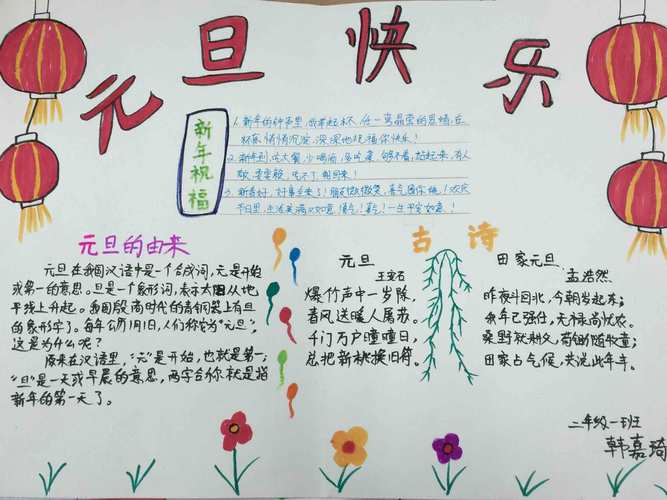 元旦快乐
新年祝福
1、新年的钟声里,我举起杯,任一弯晶莹的思绪,在
杯底悄悄沉淀,深深地祝福你快乐!
2、新年到,吃大餐,少喝酒,多吃菜,够不着,站起来,有人
敬,
吃不了
3、新年好,好事全来了!朋友微微笑,喜气围你绕!欢庆
节日里,生活美满又如意!喜气!喜气!一生平安如意!
元旦的由来
元旦在我国汉语中是一个合成词,元是开始
或第一的意思。旦是一个象形词,表示太阳从地
平线上升起。我国殷商时代的青铜器上有旦
的象形字了。每年公历1月1日,人们称它为“元旦”,
这是为什么呢?
原来在汉语里,“元”是开始,也就是第一;
“旦”是一天或早晨的意思,两字合你就是指
新年的第一天了。
古诗
元旦
王安石
爆竹声中一岁除,
春风送暖入屠苏。
千门万户曈曈日,
总把新桃换旧符。
田家元旦
孟浩然
昨夜斗回北,今朝岁起东;
余年已强仕,无禄尚忧农。
桑野就耕父,荷锄随牧童;
田家占气候,共说此年丰。
二年级一班
韩嘉琦